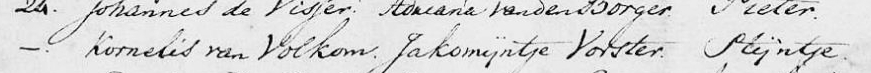 24. Johannes de Visser. Adreana vanden Borger. Pieter.
—. Kornelis van Volkom. Jakomijntje Vorster. Stijntje.